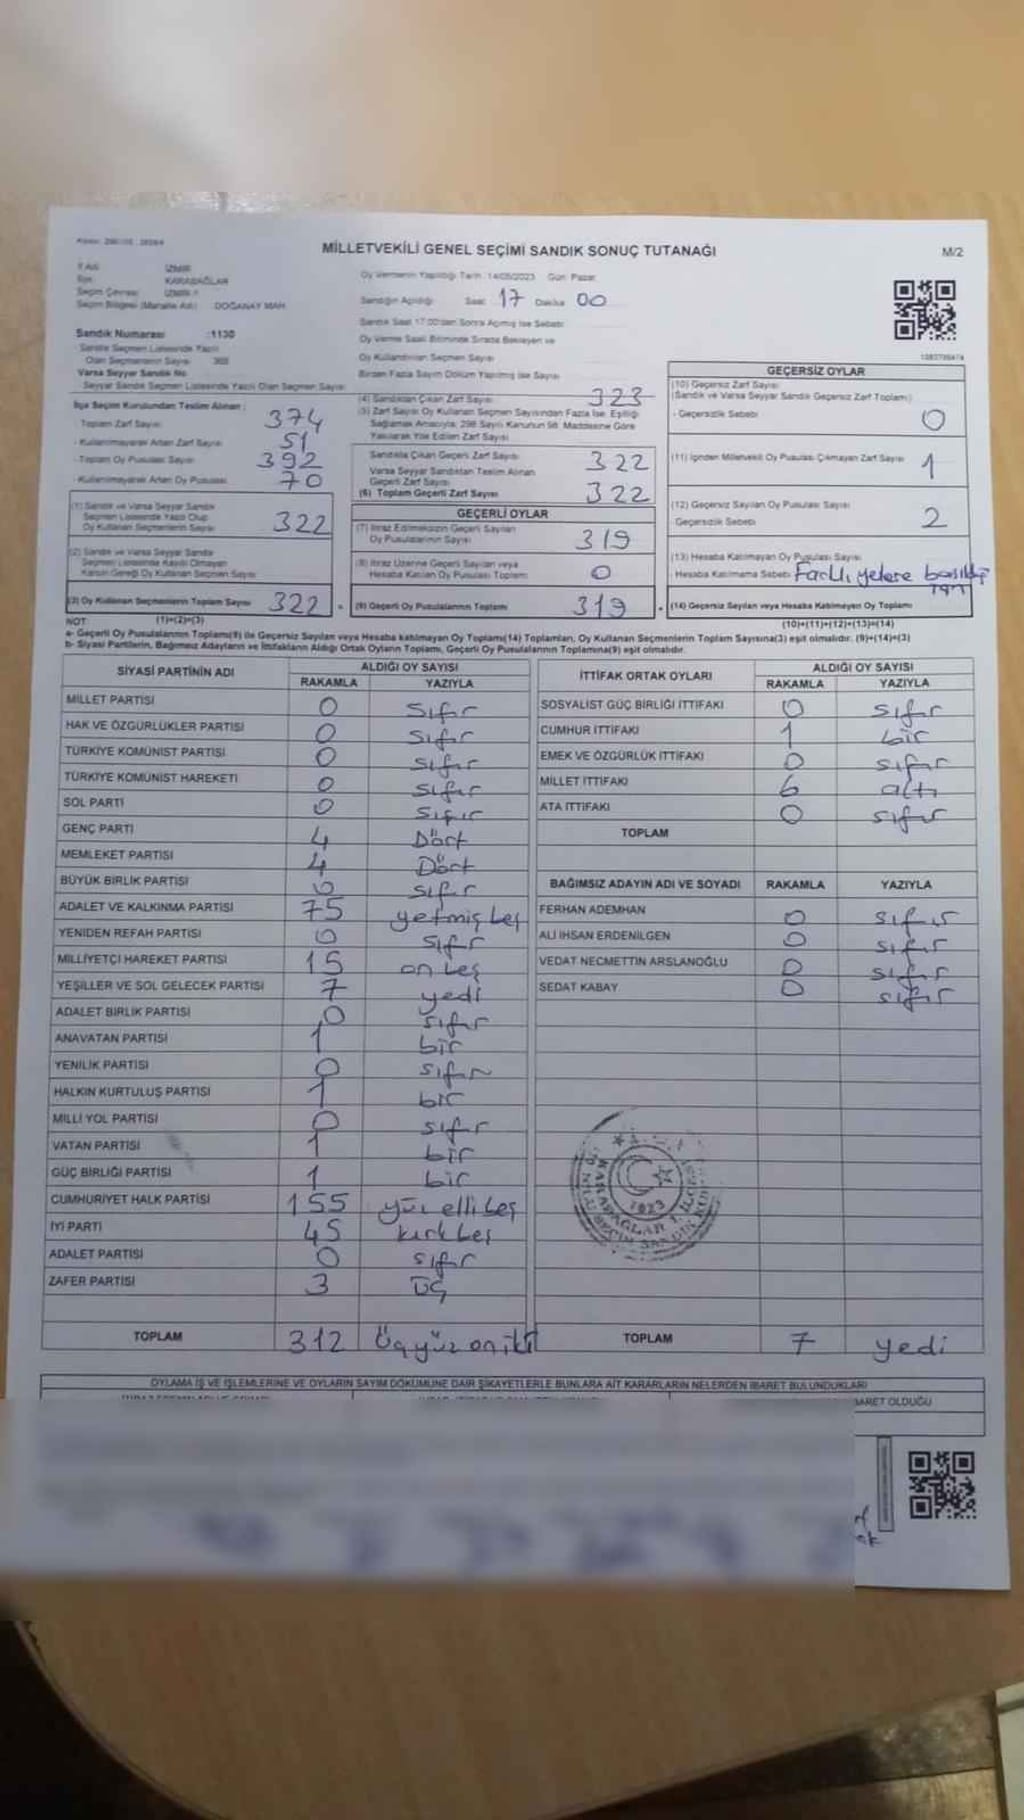 MİLLETVEKİLİ GENEL SEÇİMİ SANDIK SONUÇ TUTANAĞI
M/2
İZMİR
KARABAĞLAR
İZMİR
DOĞANAY MAH.
Oy Vermenin Yapıldığı Tarih: 14/05/2023 Gün: Pazar
Sandığın Açıldığı Saat 17 Dakika 00
Sandık Saat 17.00'dan Sonra Açılmış İse Sebebi
Oy Verme Saati Bitiminde Sırada Bekleyen ve
Oy Kullandırılan Seçmen Sayısı
Birden Fazla Sayım Döküm Yapılmış İse Sayısı
Sandık Numarası :1130
Sandık Seçmen Listesinde Yazılı
Olan Seçmenlerin Sayısı
Varsa Seyyar Sandık No
Seyyar Sandık Seçmen Listesinde Yazılı Olan Seçmen Sayısı
İlçe Seçim Kurulundan Teslim Alınan :
- Toplam Zarf Sayısı 374
- Kullanılmayarak Artan Zarf Sayısı 51
- Toplam Oy Pusulası Sayısı 392
- Kullanılmayarak Artan Oy Pusulası 70
(1) Sandık ve Varsa Seyyar Sandık
Seçmen Listesinde Yazılı Olup
Oy Kullanan Seçmenlerin Sayısı 322
(2) Sandık ve Varsa Seyyar Sandık
Seçmen Listesinde Kayıtlı Olmayan
Kanun Gereği Oy Kullanan Seçmen Sayısı
(3) Oy Kullanan Seçmenlerin Toplam Sayısı 322
(1)+(2)=(3)
(4) Sandıktan Çıkan Zarf Sayısı 323
(5) Zarf Sayısı Oy Kullanan Seçmen Sayısından Fazla İse, Eşitliği
Sağlamak Amacıyla, 298 Sayılı Kanunun 98. Maddesine Göre
Yakılarak Yok Edilen Zarf Sayısı
Sandıkta Çıkan Geçerli Zarf Sayısı 322
Varsa Seyyar Sandıktan Teslim Alınan
Geçerli Zarf Sayısı
(6) Toplam Geçerli Zarf Sayısı 322
GEÇERLİ OYLAR
(7) İtiraz Edilmeksizin Geçerli Sayılan
Oy Pusulalarının Sayısı 319
(8) İtiraz Üzerine Geçerli Sayılan veya
Hesaba Katılan Oy Pusulası Toplamı 0
(9) Geçerli Oy Pusulalarının Toplamı 319
GEÇERSİZ OYLAR
(10) Geçersiz Zarf Sayısı
(Sandık ve Varsa Seyyar Sandık Geçersiz Zarf Toplamı)
- Geçersizlik Sebebi 0
(11) İçinden Milletvekili Oy Pusulası Çıkmayan Zarf Sayısı 1
(12) Geçersiz Sayılan Oy Pusulası Sayısı
- Geçersizlik Sebebi 2
(13) Hesaba Katılmayan Oy Pusulası Sayısı
- Hesaba Katılmama Sebebi Farklı yelere
(14) Geçersiz Sayılan veya Hesaba Katılmayan Oy Toplamı
(10)+(11)+(12)+(13)=(14)
NOT:
a- Geçerli Oy Pusulalarının Toplamı(9) ile Geçersiz Sayılan veya Hesaba katılmayan Oy Toplamı(14) Toplamları, Oy Kullanan Seçmenlerin Toplam Sayısına(3) eşit olmalıdır. (9)+(14)=(3)
b- Siyasi Partilerin, Bağımsız Adayların ve İttifakların Aldığı Ortak Oyların Toplamı, Geçerli Oy Pusulalarının Toplamına(9) eşit olmalıdır.
SİYASİ PARTİNİN ADI ALDIĞI OY SAYISI
RAKAMLA YAZIYLA
MİLLET PARTİSİ 0 sıfır
HAK VE ÖZGÜRLÜKLER PARTİSİ 0 sıfır
TÜRKİYE KOMÜNİST PARTİSİ 0 sıfır
TÜRKİYE KOMÜNİST HAREKETİ 0 sıfır
SOL PARTİ 0 sıfır
GENÇ PARTİ 4 Dört
MEMLEKET PARTİSİ 4 Dört
BÜYÜK BİRLİK PARTİSİ 0 sıfır
ADALET VE KALKINMA PARTİSİ 75 yetmiş beş
YENİDEN REFAH PARTİSİ 0 sıfır
MİLLİYETÇİ HAREKET PARTİSİ 15 on beş
YEŞİLLER VE SOL GELECEK PARTİSİ 7 yedi
ADALET BİRLİK PARTİSİ 0 sıfır
ANAVATAN PARTİSİ 1 bir
YENİLİK PARTİSİ 0 sıfır
HALKIN KURTULUŞ PARTİSİ 1 bir
MİLLİ YOL PARTİSİ 0 sıfır
VATAN PARTİSİ 1 bir
GÜÇ BİRLİĞİ PARTİSİ 1 bir
CUMHURİYET HALK PARTİSİ 155 yüz elli beş
İYİ PARTİ 45 kırk beş
ADALET PARTİSİ 0 sıfır
ZAFER PARTİSİ 3 üç
TOPLAM 312 Üçyüz oniki
İTTİFAK ORTAK OYLARI ALDIĞI OY SAYISI
RAKAMLA YAZIYLA
SOSYALİST GÜÇ BİRLİĞİ İTTİFAKI 0 sıfır
CUMHUR İTTİFAKI 1 bir
EMEK VE ÖZGÜRLÜK İTTİFAKI 0 sıfır
MİLLET İTTİFAKI 6 altı
ATA İTTİFAKI 0 sıfır
TOPLAM
BAĞIMSIZ ADAYIN ADI VE SOYADI RAKAMLA YAZIYLA
FERHAN ADEMHAN 0 sıfır
ALİ İHSAN ERDENİLGEN 0 sıfır
VEDAT NECMETTİN ARSLANOĞLU 0 sıfır
SEDAT KABAY 0 sıfır
1923
TOPLAM 7 yedi
OYLAMA İŞ VE İŞLEMLERİNE VE OYLARIN SAYIM DÖKÜMÜNE DAİR ŞİKAYETLERLE BUNLARA AİT KARARLARIN NELERDEN İBARET BULUNDUKLARI